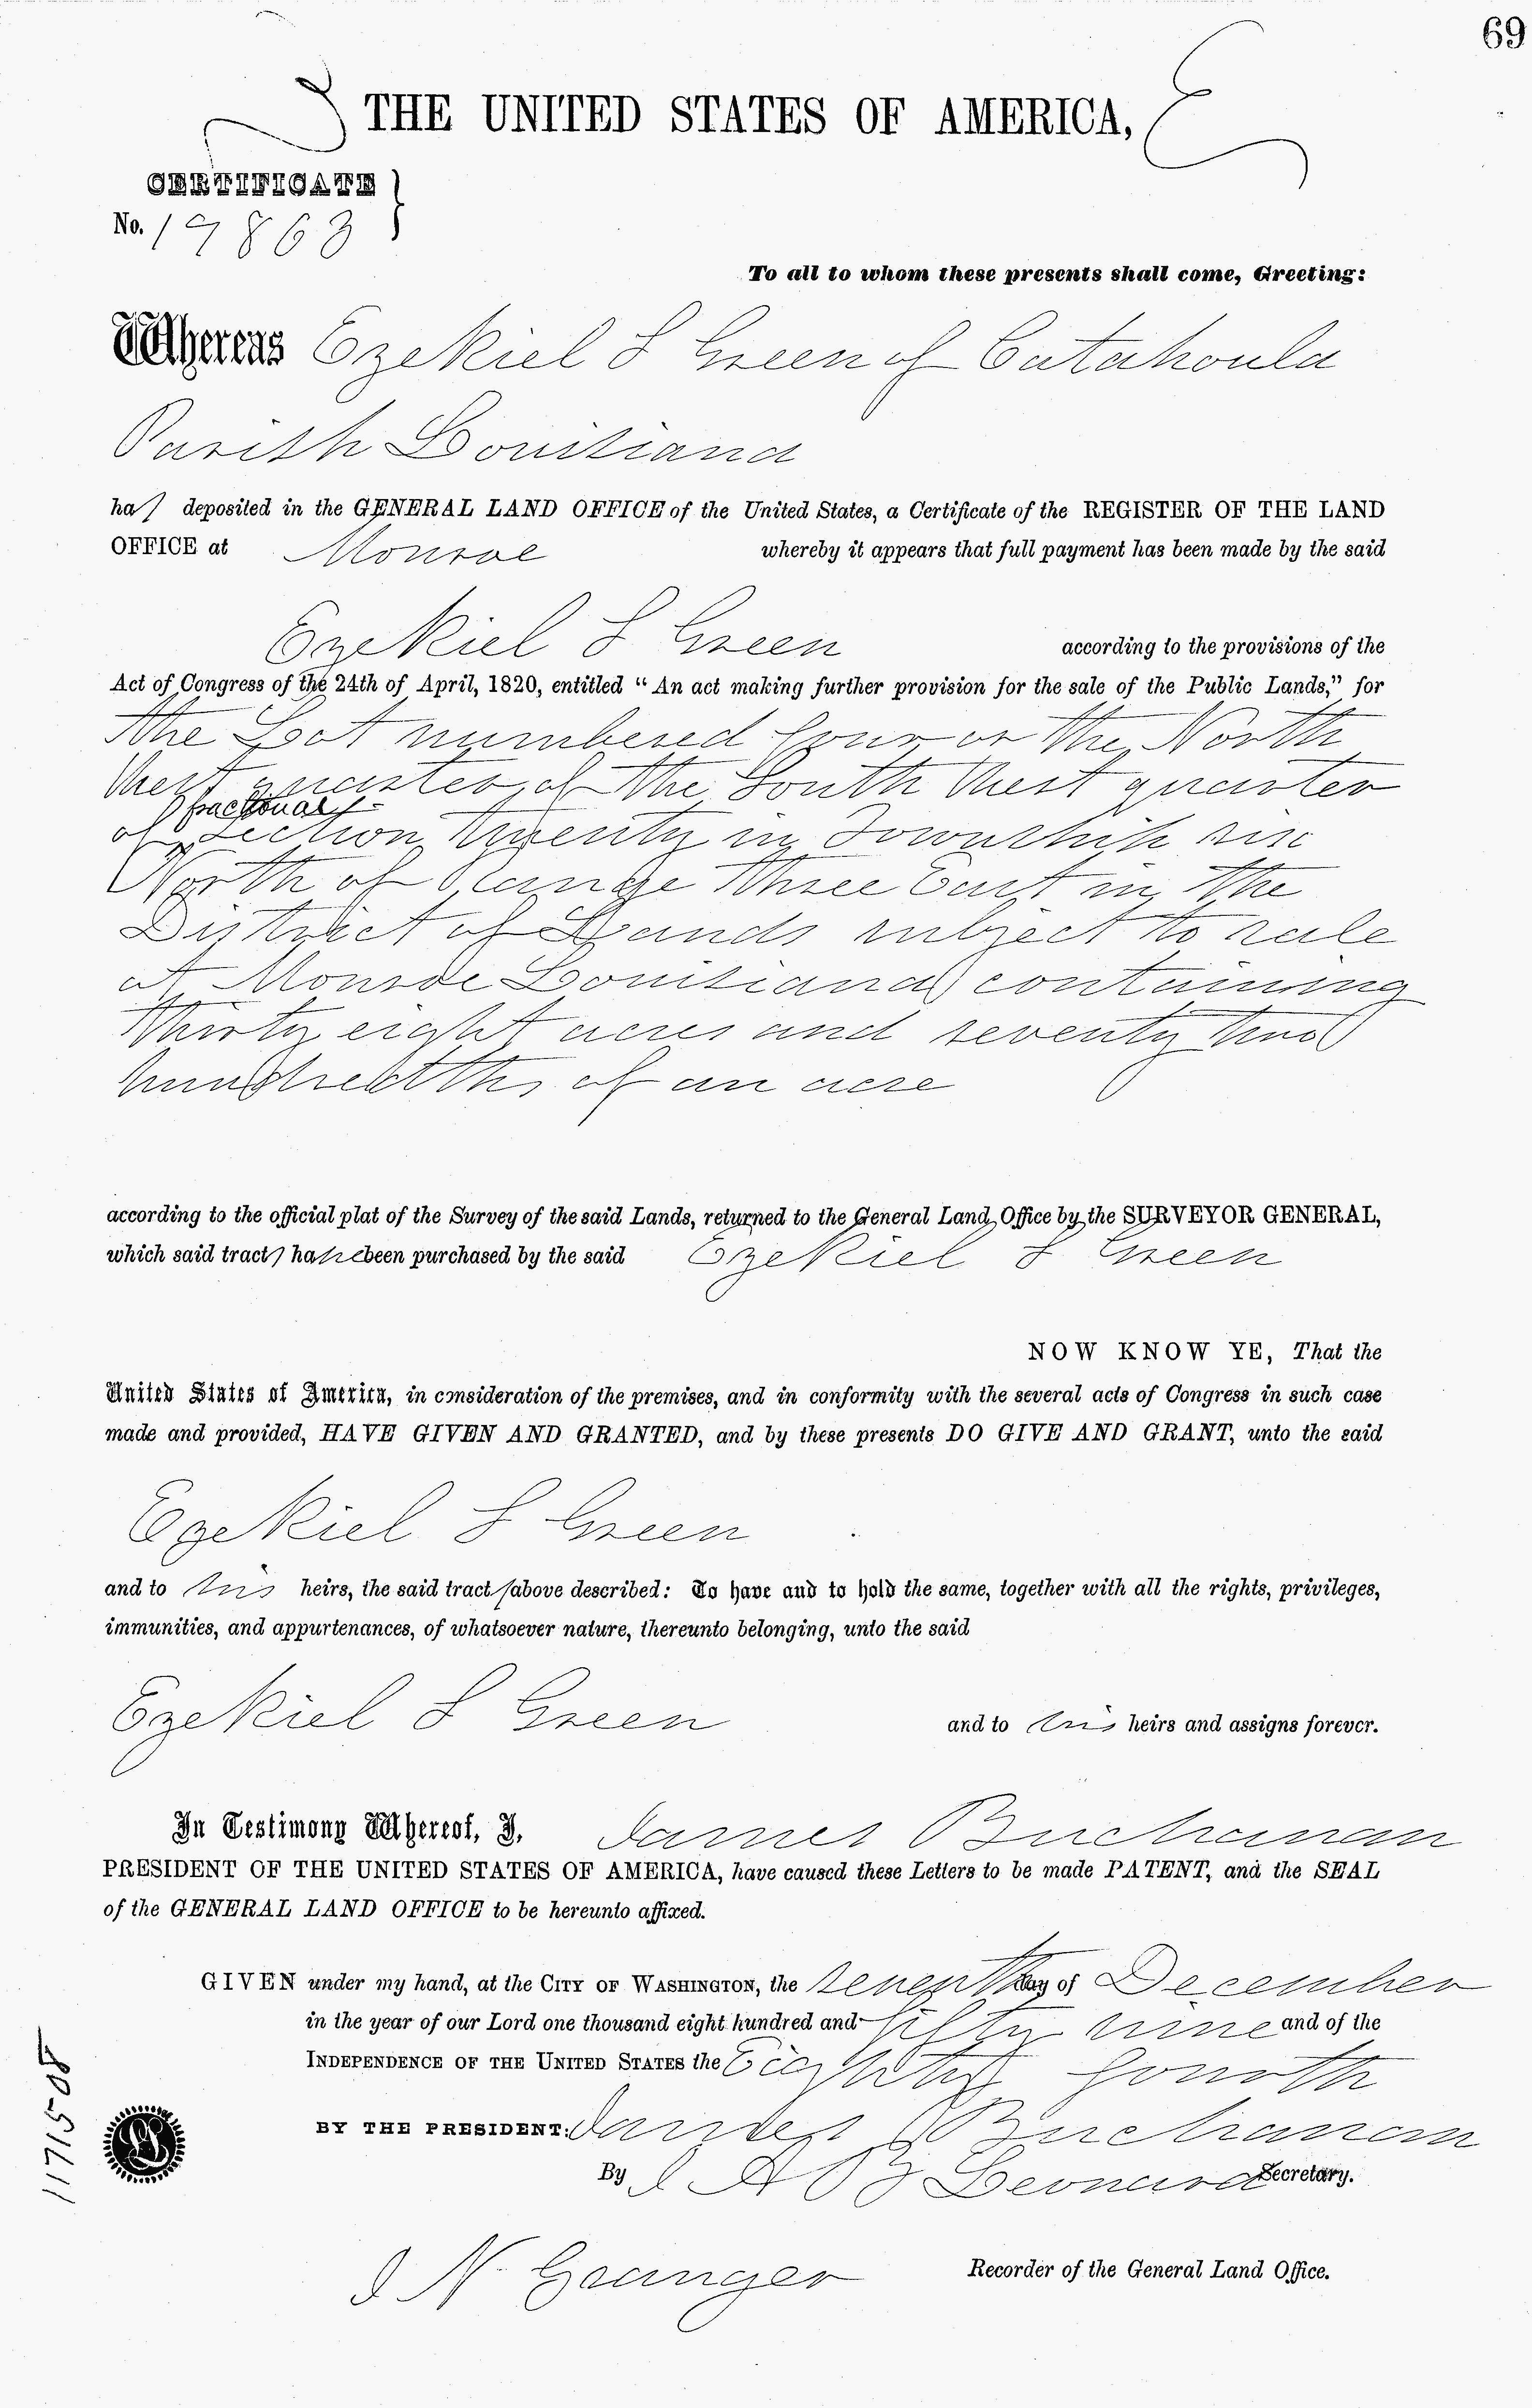 69
THE UNITED STATES OF AMERICA,
CERTIFICATE
No. 19863
To all to whom these presents shall come, Greeting:
Whereas Ezekiel S Green of Catahoula
Parish Louisiana
has deposited in the GENERAL LAND OFFICE of the United States, a Certificate of the REGISTER OF THE LAND
OFFICE at Monroe whereby it appears that full payment has been made by the said
Ezekiel S Green according to the provisions of the
Act of Congress of the 24th of April, 1820, entitled "An act making further provision for the sale of the Public Lands," for
the Lot numbered four or the North
West quarter, of the South West quarter
of fractional Section twenty in Township six
North of Range three East in the
District of Lands subject to sale
at Monroe Louisiana containing
thirty eight acres and seventy two
hundredths of an acre
according to the official plat of the Survey of the said Lands, returned to the General Land Office by the SURVEYOR GENERAL,
which said tract has been purchased by the said Ezekiel S Green
NOW KNOW YE, That the
United States of America, in consideration of the premises, and in conformity with the several acts of Congress in such case
made and provided, HAVE GIVEN AND GRANTED, and by these presents DO GIVE AND GRANT, unto the said
Ezekiel S Green
and to his heirs, the said tract above described: To have and to hold the same, together with all the rights, privileges,
immunities, and appurtenances, of whatsoever nature, thereunto belonging, unto the said
Ezekiel S Green and to his heirs and assigns forever.
In Testimony Whereof, I, James Buchanan
PRESIDENT OF THE UNITED STATES OF AMERICA, have caused these Letters to be made PATENT, and the SEAL
of the GENERAL LAND OFFICE to be hereunto affixed.
GIVEN under my hand, at the CITY OF WASHINGTON, the seventh day of December
in the year of our Lord one thousand eight hundred and fifty nine and of the
INDEPENDENCE OF THE UNITED STATES the Eighty fourth
BY THE PRESIDENT: James Buchanan
By J A B Leonard Secretary.
J N Granger Recorder of the General Land Office.
1171508